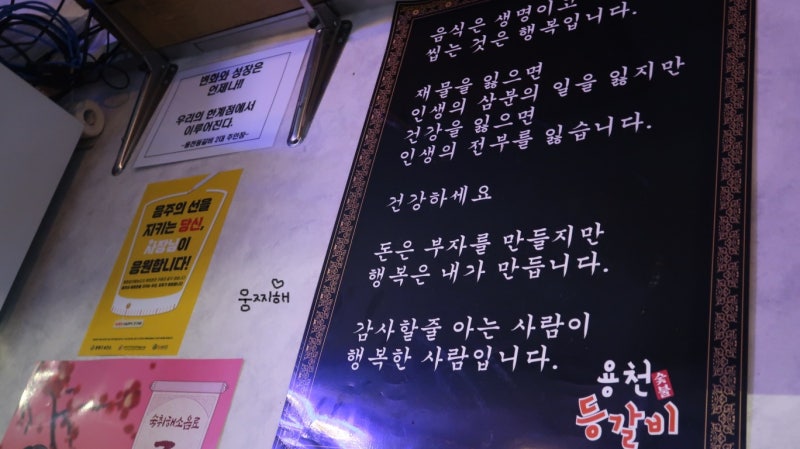 변화와 성장은
언제나!!
우리의 한계점에서
이루어진다.
-용천등갈비 2대 주인장-
음주의 선을
지키는 당신,
사장님이
응원합니다!
웅찌해
숙취해소음료
음식은 생명이고
씹는 것은 행복입니다.
재물을 잃으면
인생의 삼분의 일을 잃지만
건강을 잃으면
인생의 전부를 잃습니다.
건강하세요
돈은 부자를 만들지만
행복은 내가 만듭니다.
감사할줄 아는 사람이
행복한 사람입니다.
용천 숯불
등갈비